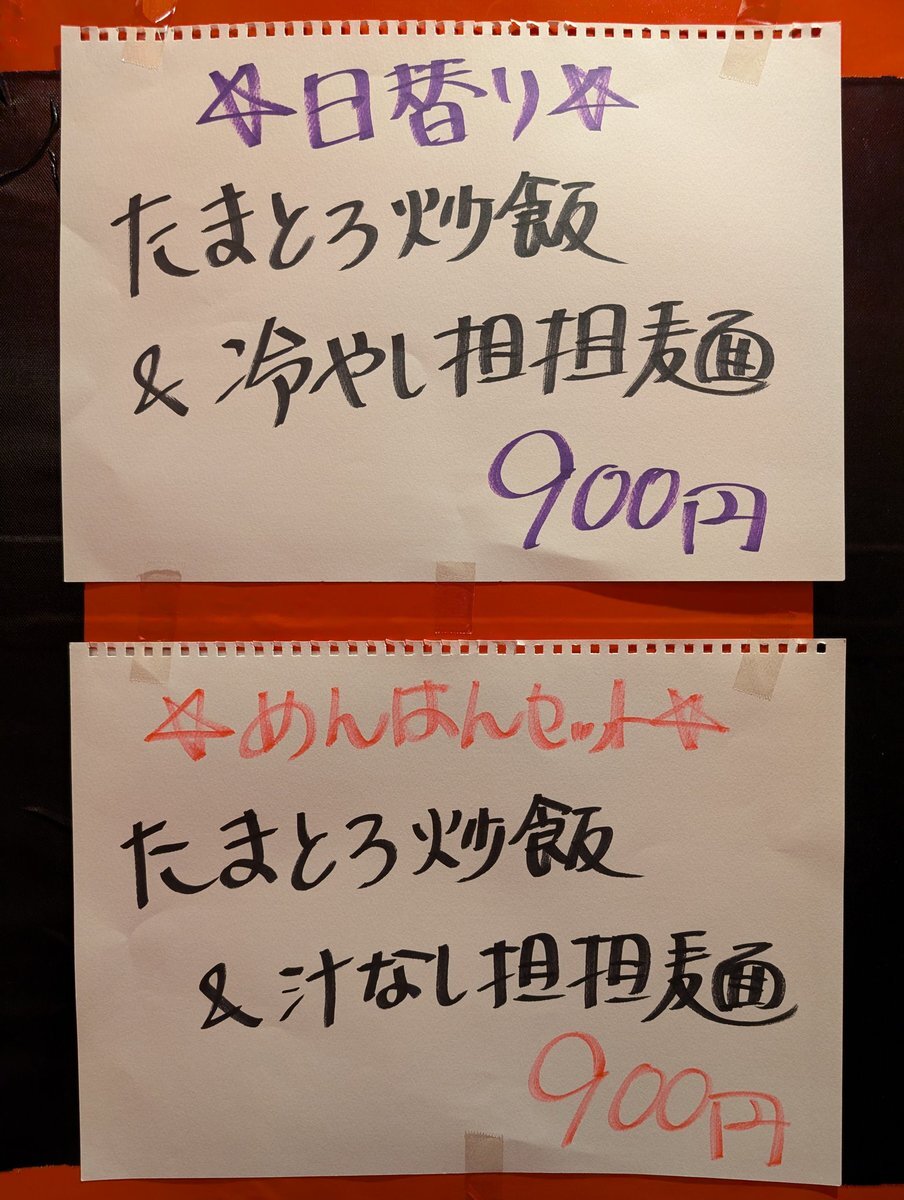 ☆日替り☆
たまとろ炒飯
& 冷やし担担麺
900円
☆めんはんセット☆
たまとろ炒飯
& 汁なし担担麺
900円